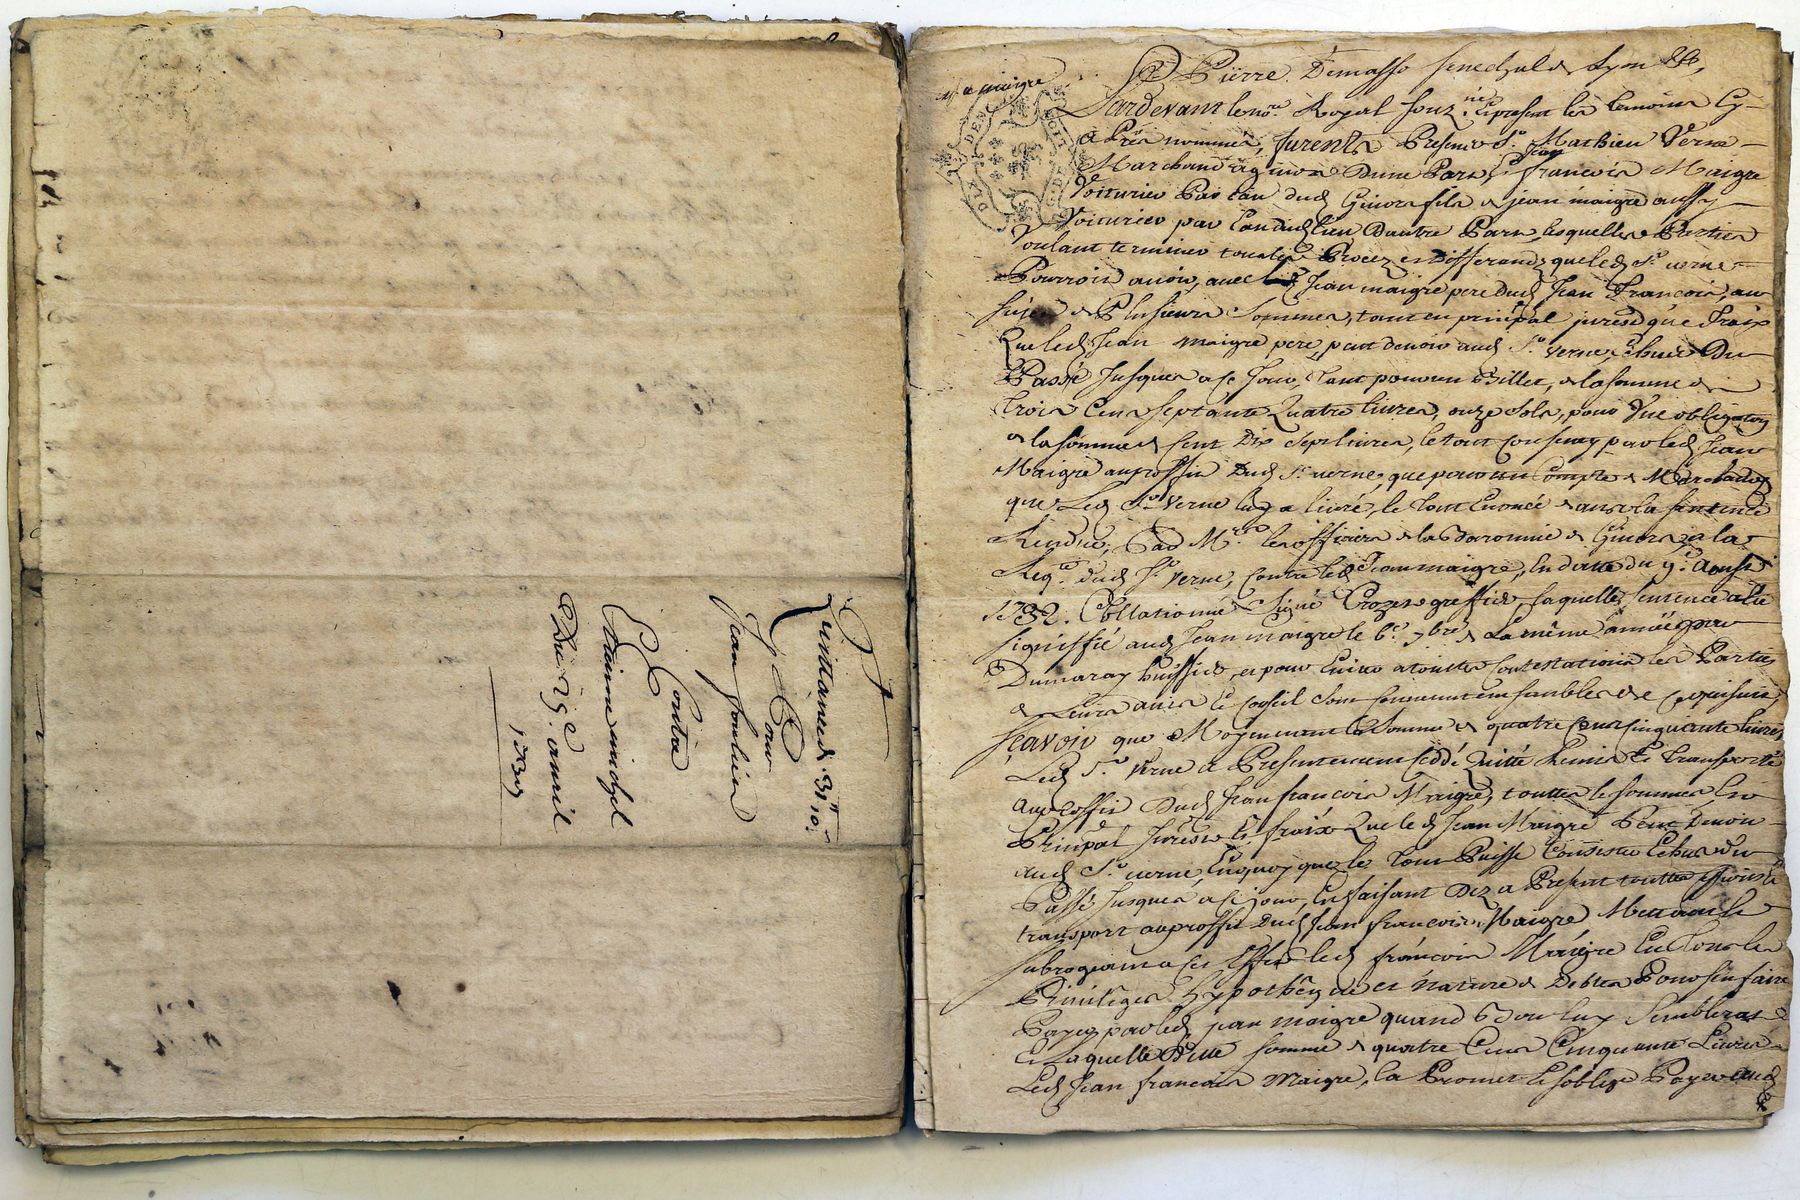 Quittance de 31ᵗᵗ 10ˢ
Pour
Jean Jouluien
Contre
Etienne michel
Du 25ᵉ avril
173
DEUX
DEN
G. DE
maigre
Pierre Demasso senechal de Lyon
Pardevant le noʳᵉ Royal souzⁿᵉ & present les temoins Cy
aPrès nommés, furent Present Sʳ Mathieu Verne
Marchand a givors Dune Part, & Jean francois Maigre
Voiturier Par Eau dud Givors fils de jean maigre aussy
Voiturier par Eau dud lieu Dautre Part, lesquelles Parties
Voulant terminer tous les Procez et Differands que led Sʳ verne
Pourroit avoir, avec Jean maigre pere dud Jean Francois, au
sujet de Plusieurs Sommes, tant en prinpal jnterest que Fraix
Que led Jean maigre pere, peut devoir aud Sʳ verne, Echus Du
Passé Jusques a ce Jour, tant pour un Billet, de la somme de
Trois Cens septante Quatre livres, onze sols, pour Vne obligation
de la somme de Cent Dix sept livres, le tout par led Jean
Maigre au proffit Dud Sʳ verne, que pour un Compte de Marchandises
que Led Sʳ Verne luy a livré, le tout Enoncé dans la sentence
Rendue Par Mʳˢ les officiers de la Baronnie de Givors a la
Reqᵗᵉ dud Sʳ Verne, Contre led Jean maigre, En date du 9ᵉ Aoust
1732. Collationné Signé greffier, laquelle sentence a été
signiffié aud Jean maigre le 6ᵉ 7bre de La même année par
Dumaray huissier, et pour Eviter a toutes Contestations les Parties
de Leurs avis & Conseil sont Convenues ensembles de Ce qui suit,
sçavoir que Moyennant la Somme de quatre Cens Cinquante livres
Led Sʳ Verne a Presentement Ceddé Quitté Remis & transporté
au proffit Dud Jean francois Maigre, touttes les sommes, En
Prinpal Jnterest & fraix Que led Jean Maigre Peut Devoir
aud Sʳ verne, En quoy que le tout Puisse Consister Echus du
Passé Jusques a ce jour, En faisant Dez a Present touttes
transport au proffit Dud Jean francois Maigre Mettant &
subrogeant a ces Effets led francois Maigre En tous les
Privilèges hypothèque et nature de Debtes Pour s'en faire
Payer par led jean maigre quand Bon luy Semblera
& Laquelle Ditte somme de quatre Cens Cinquante Livres
Led Jean francois Maigre, la Promet & s'oblige Payer aud